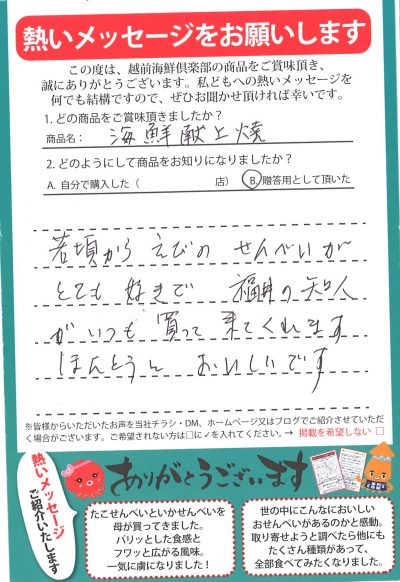 熱いメッセージをお願いします
この度は、越前海鮮倶楽部の商品をご賞味頂き、
誠にありがとうございます。私どもへの熱いメッセージを
何でも結構ですので、ぜひお聞かせ頂ければ幸いです。
1. どの商品をご賞味頂きましたか？
商品名： 海鮮献上焼
2. どのようにして商品をお知りになりましたか？
A. 自分で購入した（ 店） B. 贈答用として頂いた
若頃から えびの せんべいが
とても 好きで 福井の知人
がいつも 買って 来てくれます
ほんとうに おいしいです
※皆様からいただいたお声を当社チラシ・DM、ホームページ又はブログでご紹介させていただ
く場合がございます。ご希望されない方は□に✓を入れてください。→ 掲載を希望しない □
熱いメッセージ
ご紹介いたします
ありがとうございます
たこせんべいといかせんべいを
母が買ってきました。
パリッとした食感と
フワッと広がる風味。
一気に虜になりました！
世の中にこんなにおいしい
おせんべいがあるのかと感動。
取り寄せようと調べたら他にも
たくさん種類があって、
全部食べてみたくなりました。